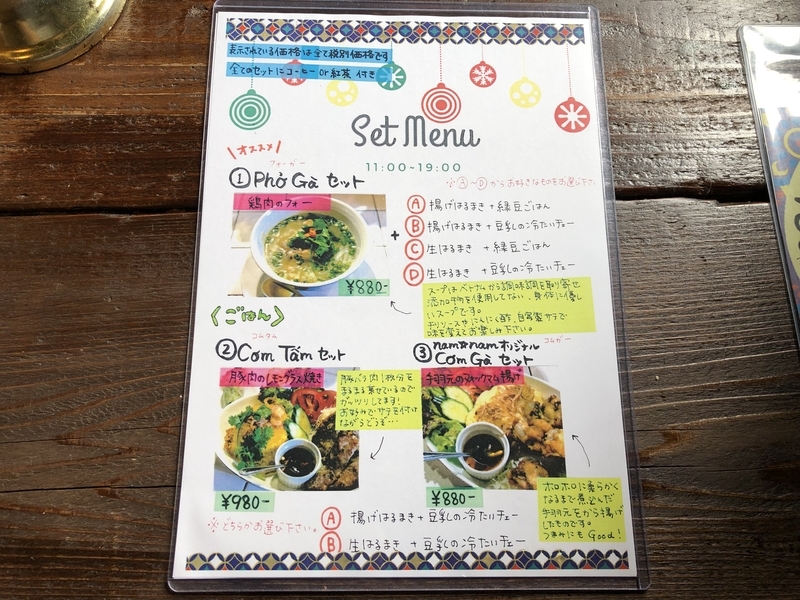 表示されている価格は全て税別価格です
全てのセットにコーヒー or 紅茶 付き
Set Menu
11:00~19:00
\オススメ/
フォーガー
①Phở Gà セット
※Ⓐ~Ⓓからお好きなものをお選び下さい
鶏肉のフォー
¥880-
+
Ⓐ 揚げはるまき + 緑豆ごはん
Ⓑ 揚げはるまき + 豆乳の冷たいチェー
Ⓒ 生はるまき + 緑豆ごはん
Ⓓ 生はるまき + 豆乳の冷たいチェー
スープはベトナムから調味料を取り寄せ
添加物を使用してない、身体に優し
いスープです。
チリソースやにんにく酢、自家製サテで
味を変えてお楽しみ下さい。
〈ごはん〉
コムタム
②Cơm Tấm セット
豚肉のレモングラス焼き
豚バラ肉1枚分を
まるまる乗せているので
ガッツリしてます!
お好みでサテを付け
ながらどうぞ…
¥980-
③nam☆namオリジナル
コムガー
Cơm Gà セット
手羽元のヌックマム揚げ
¥880-
ホロホロに柔らかく
なるまで煮込んだ
手羽元をから揚げ
したものです。
つまみにも Good!
※どちらかお選び下さい。
Ⓐ 揚げはるまき + 豆乳の冷たいチェー
Ⓑ 生はるまき + 豆乳の冷たいチェー